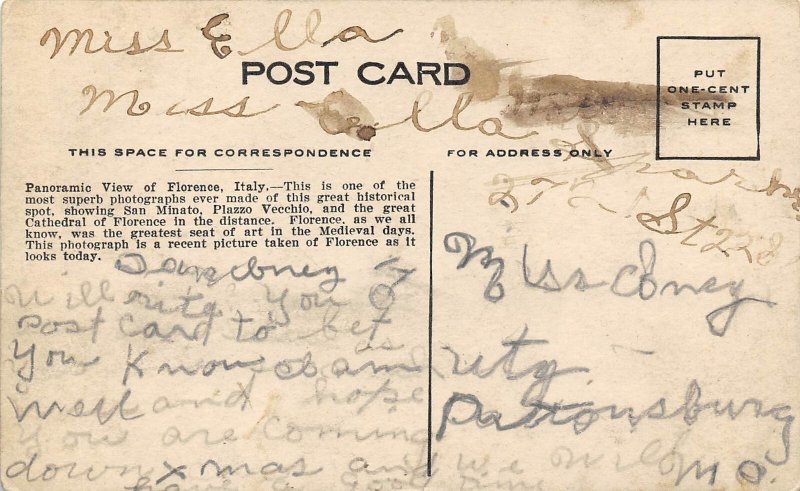 Miss Ella
POST CARD
Miss Ella
PUT
ONE-CENT
STAMP
HERE
THIS SPACE FOR CORRESPONDENCE
FOR ADDRESS ONLY
Panoramic View of Florence, Italy.—This is one of the
most superb photographs ever made of this great historical
spot, showing San Minato, Plazzo Vecchio, and the great
Cathedral of Florence in the distance. Florence, as we all
know, was the greatest seat of art in the Medieval days.
This photograph is a recent picture taken of Florence as it
looks today.
St 228
will rite you a
post card to let
you know I am
well and hope
you are coming
down xmas and we will
have a good time
Miss
Pattonsburg
Mo.